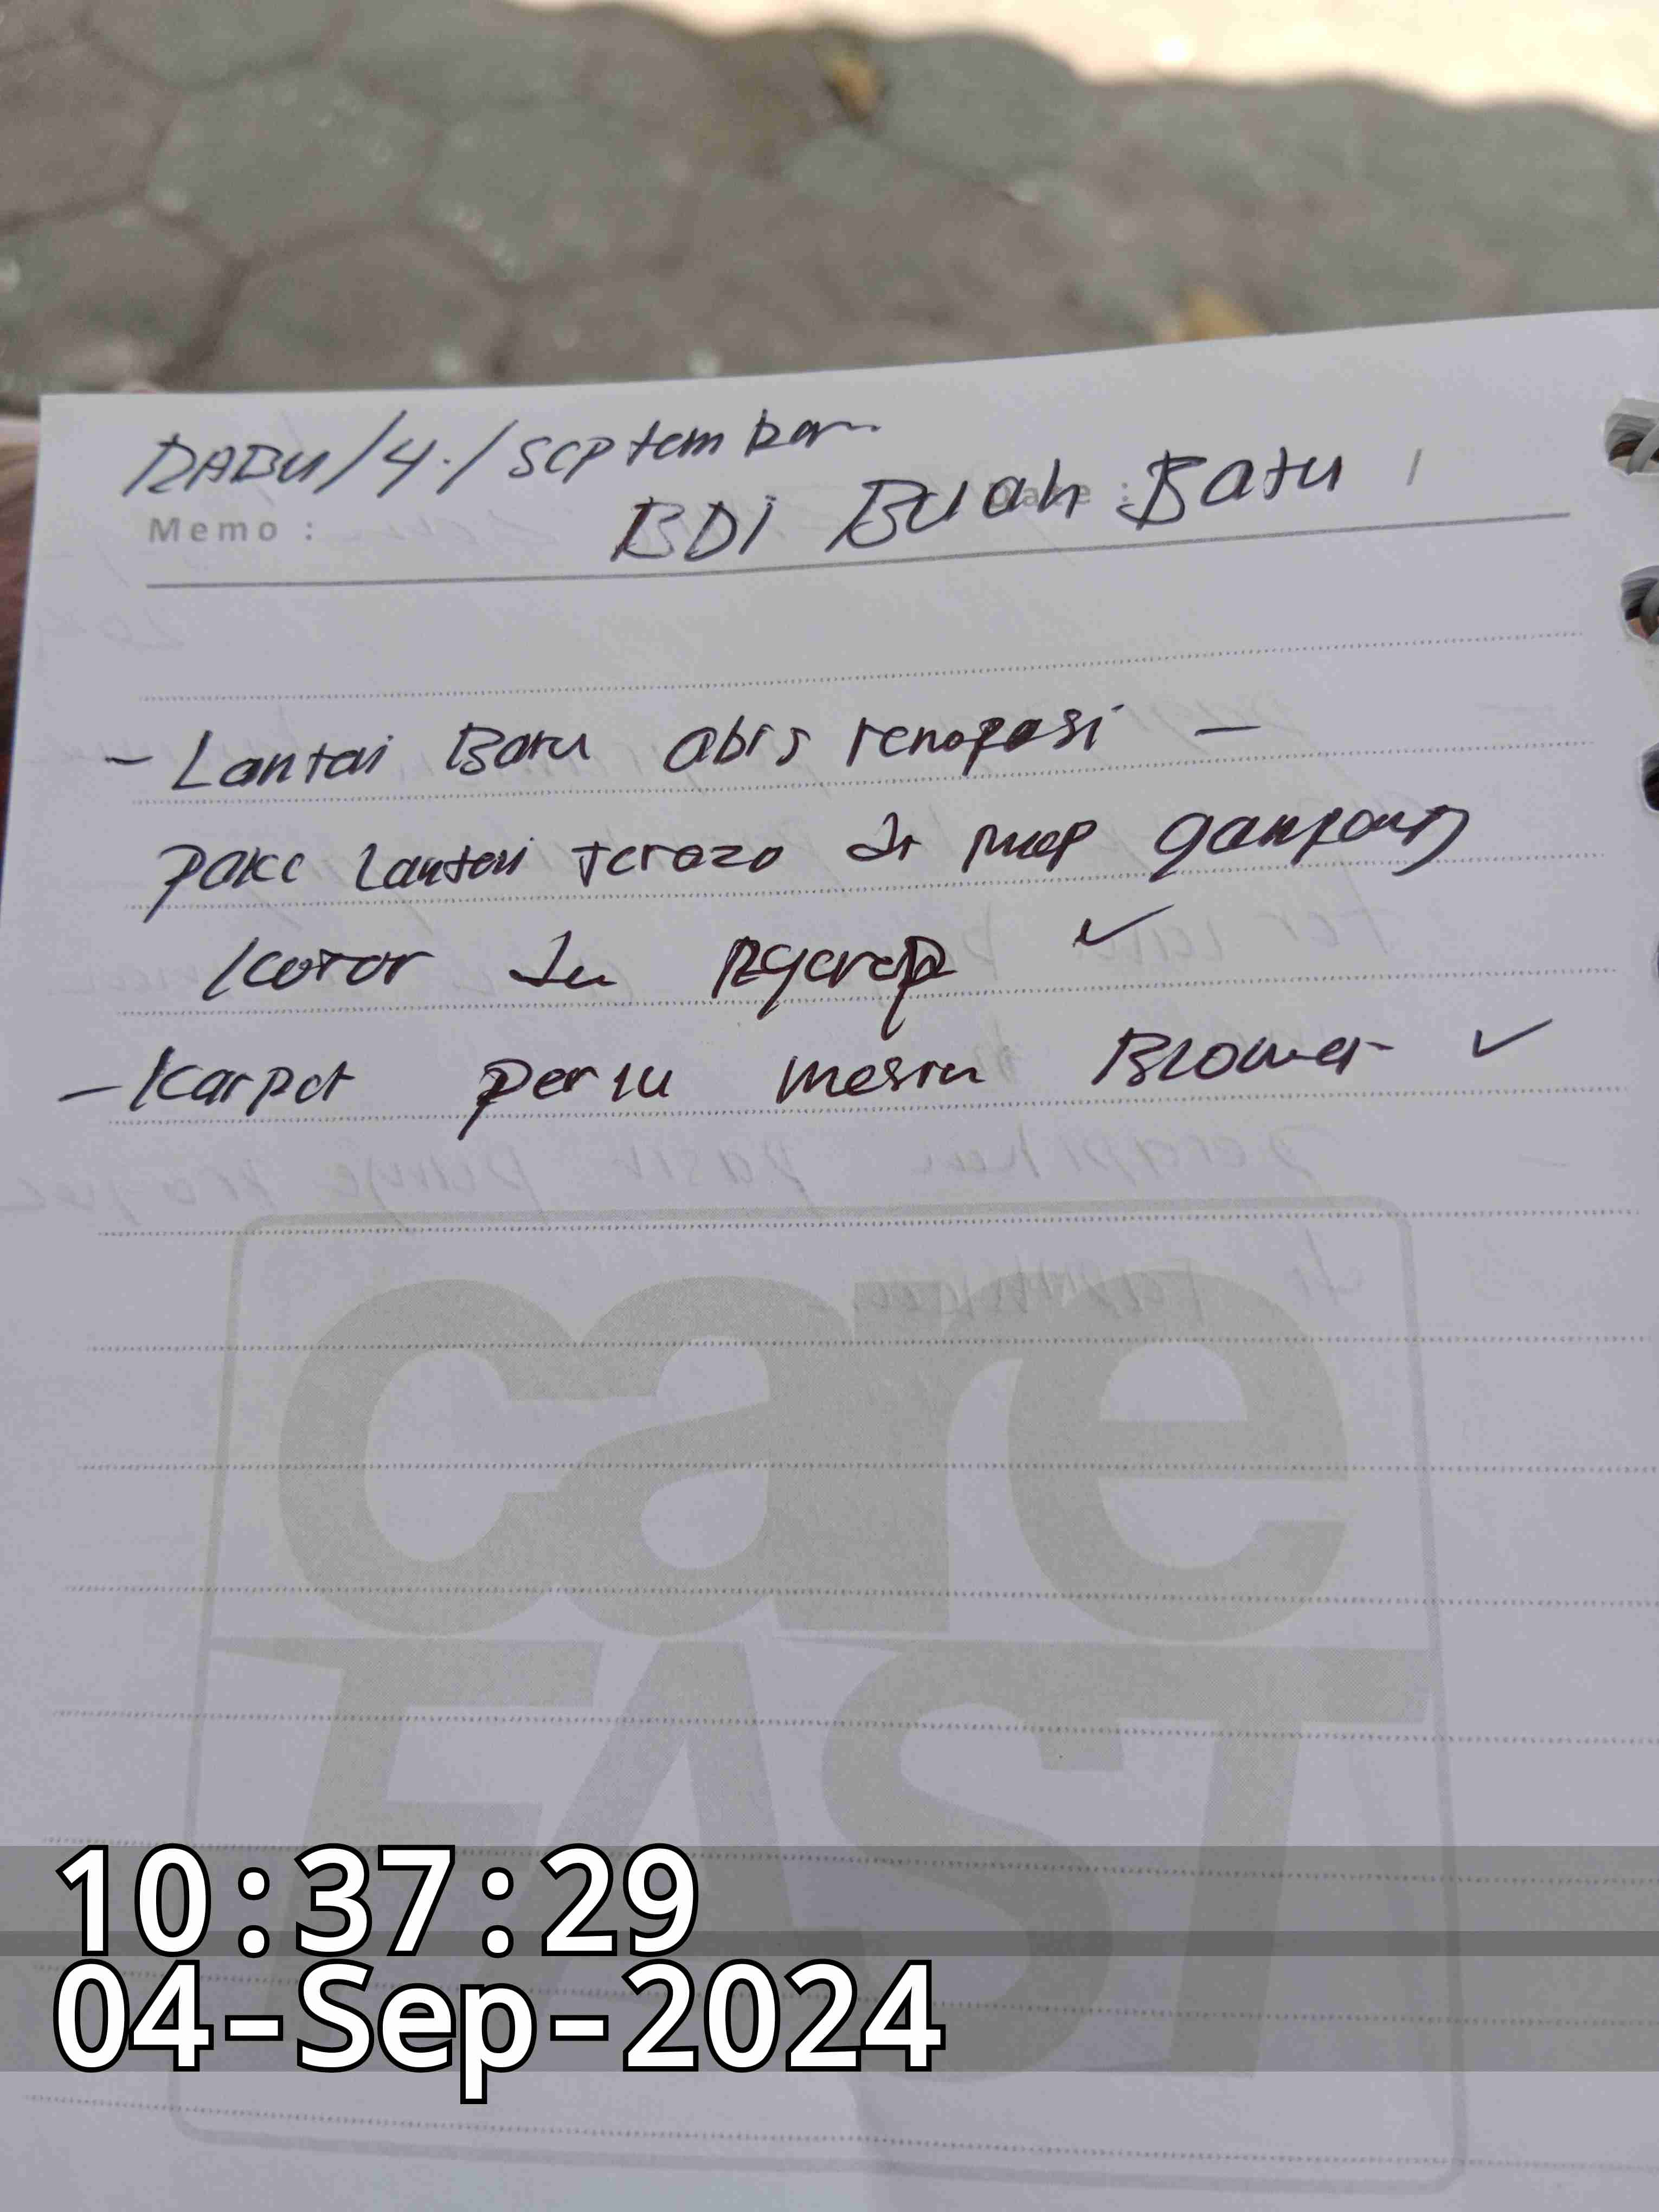 RABU/4./September
BDI Buah Batu
Memo :
- Lantai Baru abis renopasi -
pake Lantai terazo di mop gampang
kotor dn ngerep ✓
- Karpet perlu mesin Blower ✓
care
FAST
10:37:29
04-Sep-2024